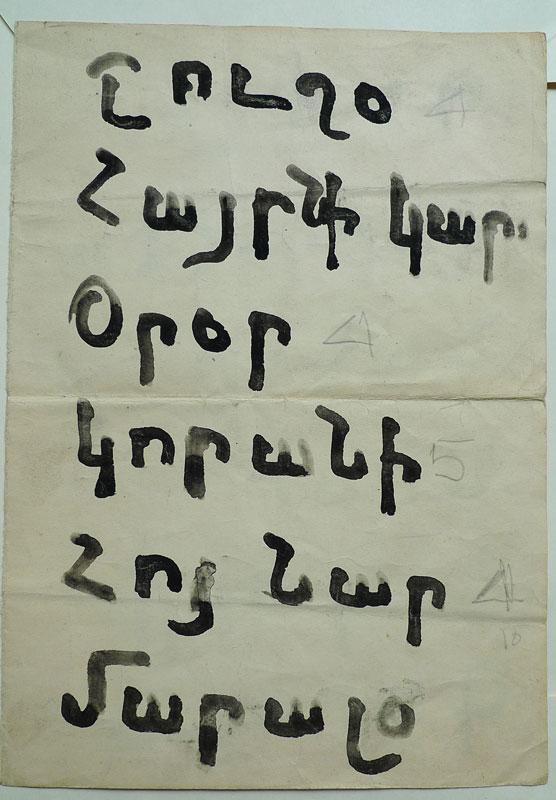 Շուշօ 4
Հայրնի կար
Օրօր 4
Կորանի 5
Հոյ Նար 4
10
Մարալօ